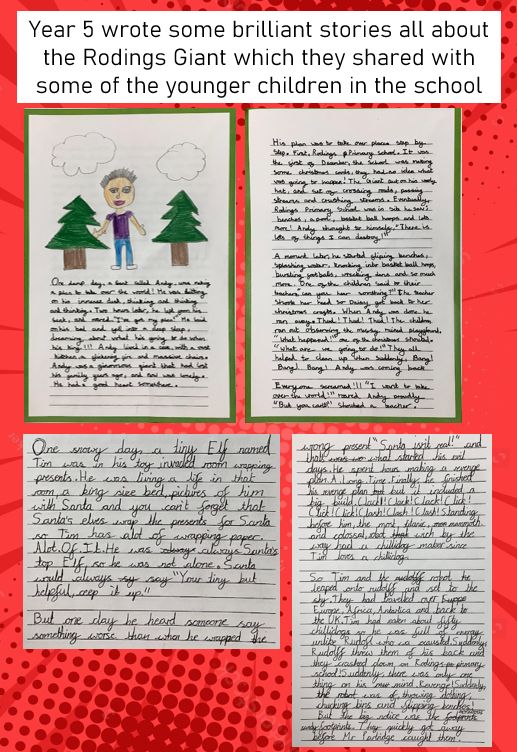 Year 5 wrote some brilliant stories all about
the Rodings Giant which they shared with
some of the younger children in the school
One damp day, a beast called Andy, was making
a plan to take over the world! He was sitting
on his immense desk, thinking and thinking
and thinking. Two hours later, he left from his
seat, and roared "I've got my plan!" He laid
on his bed and fell into a deep sleep,
dreaming about what his going to do when
his king!!! Andy lived in a cave, with a vast
kitchen, a flickering fire and massive chairs.
Andy was a ginormous giant that had lost
his family years ago, and now was lonely.
He had a good heart somewhere.
His plan was to take over places step by
step. First, Rodings Primary school. It was
the first of December, the school was making
some christmas cards, they had no idea what
was going to happen! The Giant put on his wooly
hat, and set of crossing roads, passing
streams and crushing streams. Eventually,
Rodings Primary School was in site. he saw:
benches, a pond, basket ball hoops and lots
more! Andy thought to himself, "There is
lots of things I can destroy!!"
A moment later, he started fliping benches,
splashing water, breaking into basket ball hoops,
bursting footballs, wrecking dens and so much
more. One of the children said to their
teacher, "can you hear something?" The teacher
shook her head so Daisy got back to her
christmas crafts. When Andy was done he
ran away. Thud! Thud! Thud! The children
ran out observing the messy, ruined playground.
"What happened?" one of the christmas shouted.
"What are we going to do!" They all
helped to clean up when suddenly, Bang!
Bang! Bang! Andy was coming back
Everyone screamed!!! "I want to take
over the world!" roared Andy proudly.
"But you can't!" Shouted a teacher.
One snowy day, a tiny Elf named
Tim was in his toy invaded room wrapping
presents. He was living a life in that
room, a king size bed, pictures of him
with Santa and you can't forget that
Santa's elves wrap the presents for Santa
so Tim has alot of wrapping paper.
Alot. Of. It. He was always Santa's
top Elf, so he was not alone. Santa
would always say "Your tiny but
helpful, ceep it up."
But one day he heard someone say
something worse than when he wrapped the
wrong present "Santa isn't real!" and
thats what started his evil
days. He spent hours making a revenge
plan. A. Long. Time. Finally, he finished
his revenge plan but it included a
big build. Clash! Clack! Clack! Click!
Click! Click! Clash! Clash! Clash! Standing
before him, the most, titanic, mammoth
and colossal, robot wich by the
way had a chillidog maker since
Tim loves a chillidog.
So Tim and the robot he
leaped onto rudolf and set to the
sky. They had travelled over
Europe, Africa, Antartica and back to
the UK. Tim had eaten about fifty
chillidogs so he was full of energy
unlike Rudolf who was exausted. Suddenly,
Rudolf threw them of his back and
they crashed down on Rodings primary
school! Suddenly there was only one
thing on his mind. Revenge! Suddenly,
the robot was of, throwing clothing,
chucking bins and flipping benches!
But the big notice was the
footprints. They quickly got away
before Mr Partridge caught them!